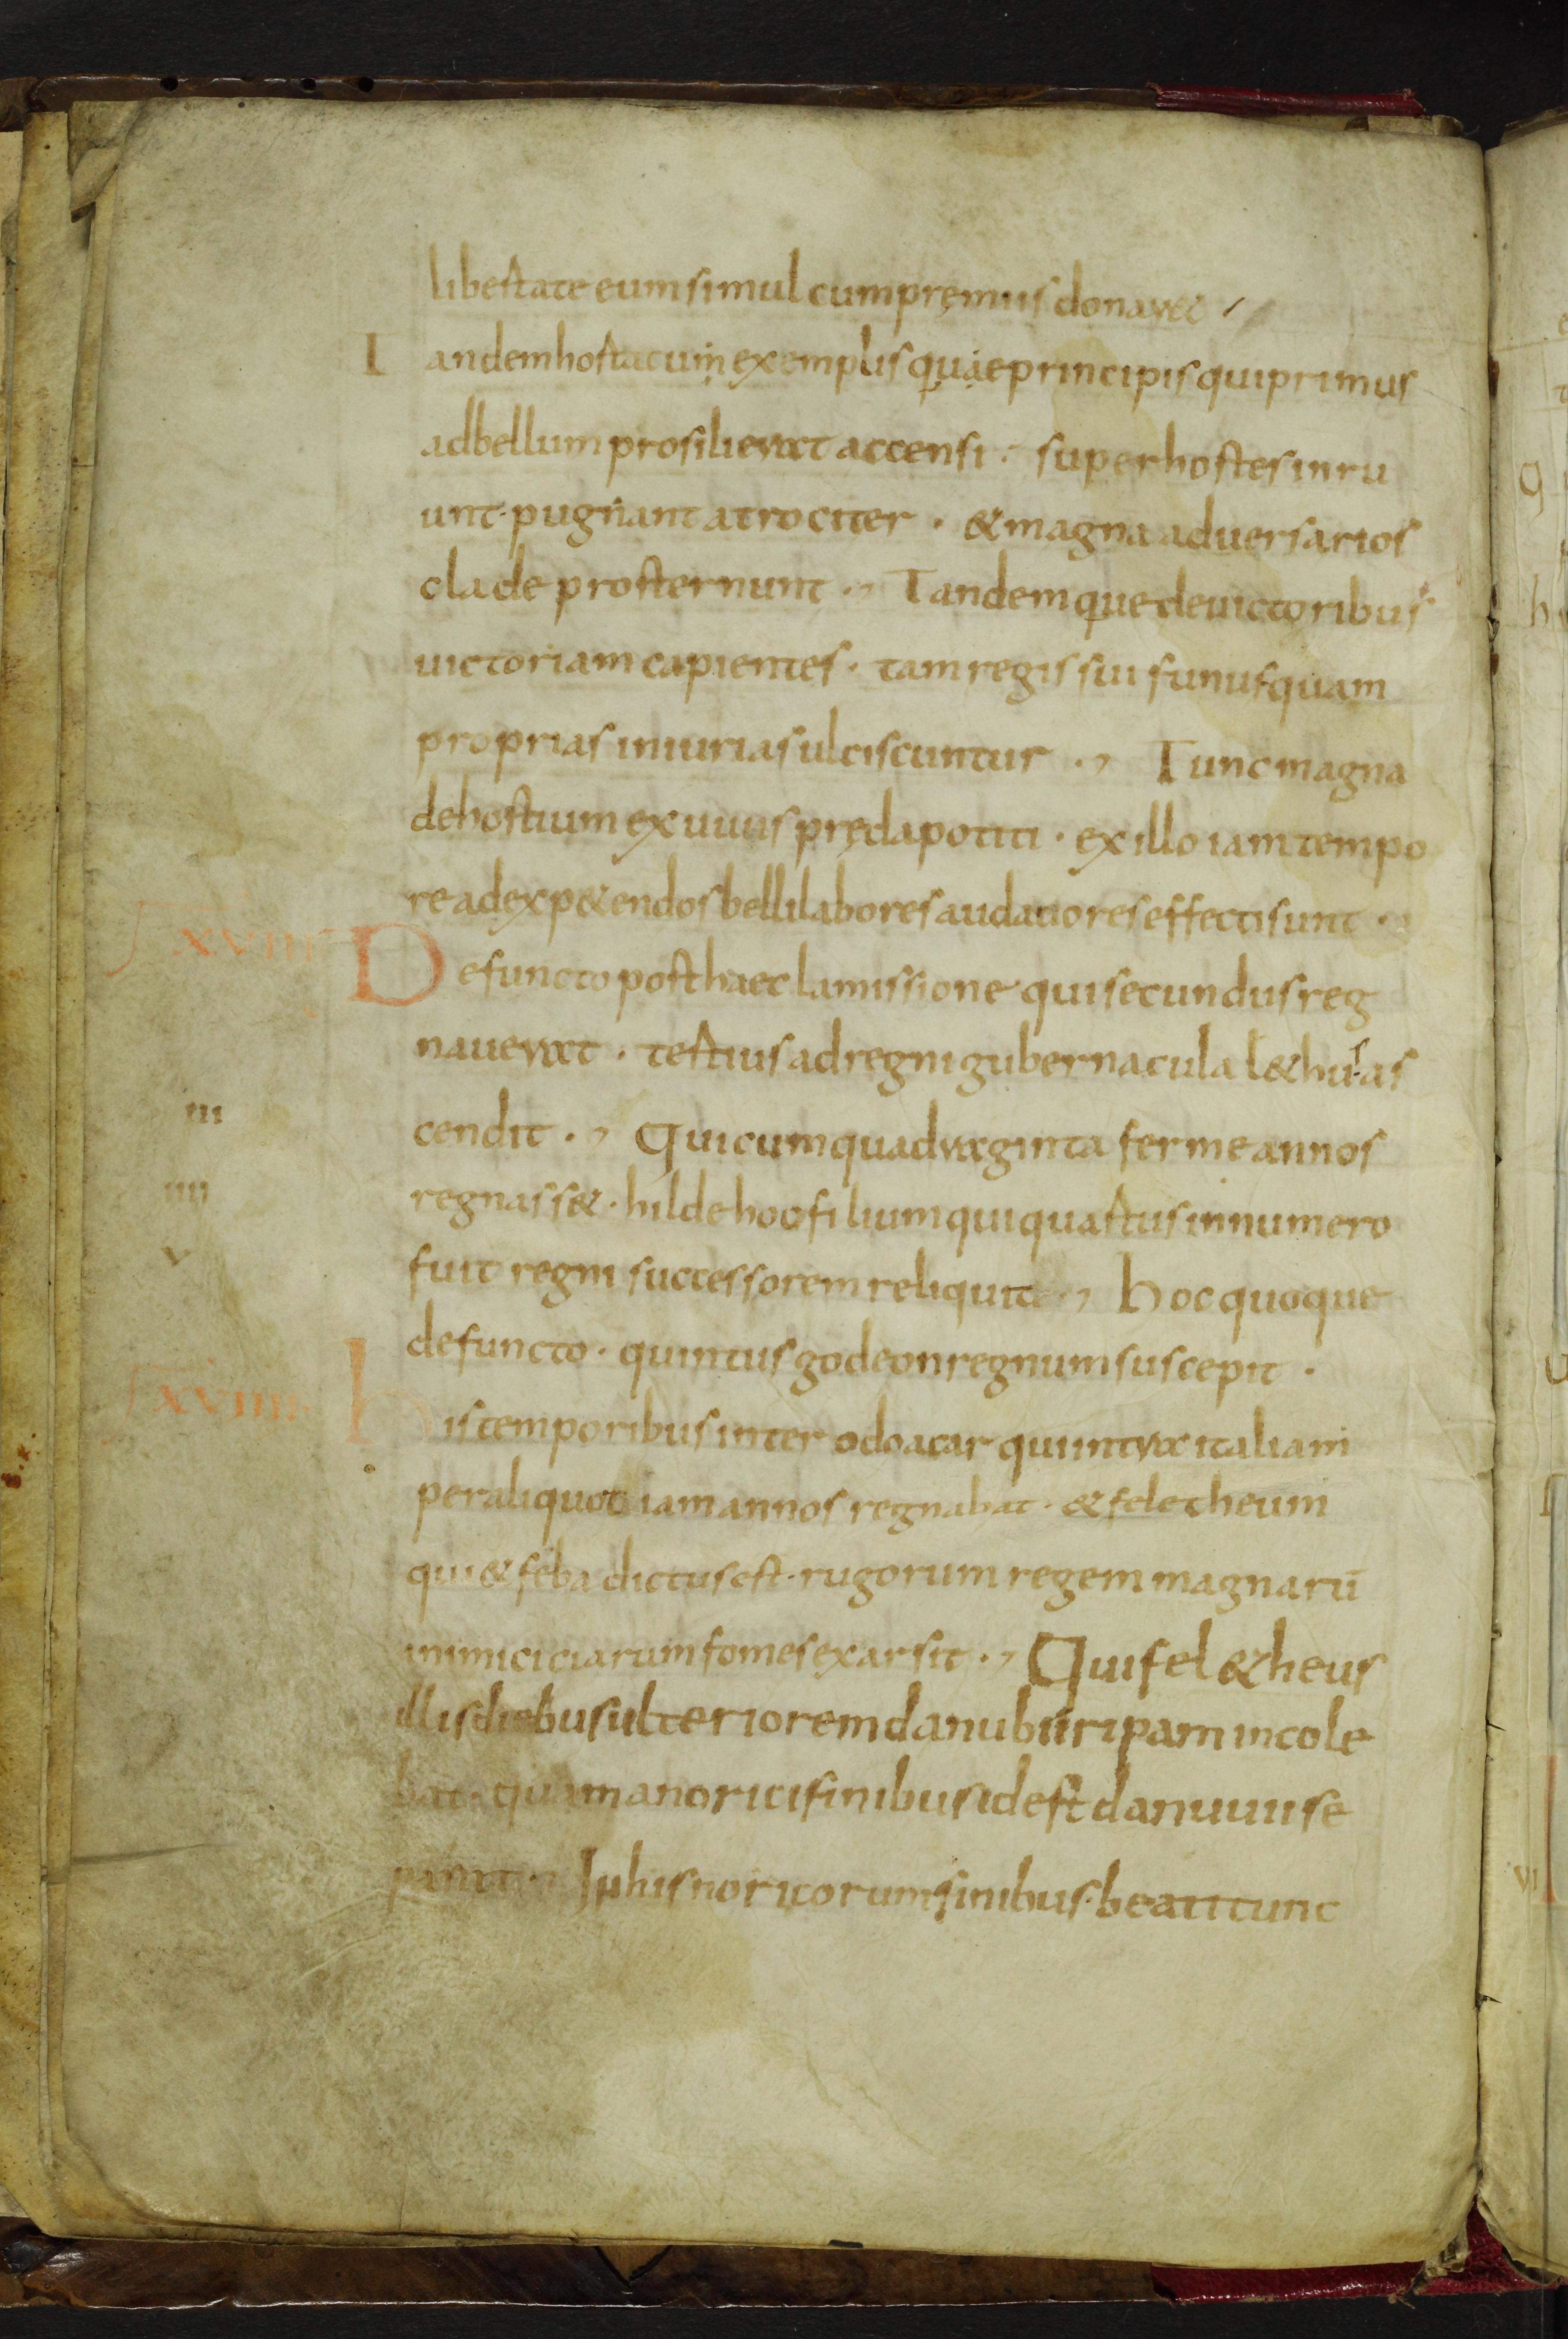 libertate eum simul cum pręmiis donaret
I andem hortatu exemplisque principis qui primus
ad bellum prosilierat accensi · super hostes inru
unt · pugnant atrociter · & magna adversarios
clade prosternunt ·, Tandemque de uictoribus
uictoriam capientes · tam regis sui funus quam
proprias iniurias ulciscuntur ·, Tunc magna
de hostium exuuiis pręda potiti · ex illo iam tempo
re ad exp&endos belli labores audatiores effecti sunt ·
XVIII Defuncto post haec lamissione qui secundus reg
nauerat · tertius ad regni gubernacula l&hu as
III cendit ·, Qui cum quadraginta ferme annos
IIII regnass& · hildehoo filium qui quartus in numero
V fuit regni successorem reliquit ·, Hoc quoque
defuncto · quintus godeon regnum suscepit ·
XVIIII His temporibus inter odoacar qui intra italiam
per aliquot iam annos regnabat · & feletheum
qui & feba dictus est · rugorum regem magnarū
inimiciciarum fomes exarsit ·, Qui fel&heus
illis diebus ulteriorem danubii ripam incole
bat · quam a norici finibus id est danuuii se
parat ·, In his noricorum finibus · beati tunc